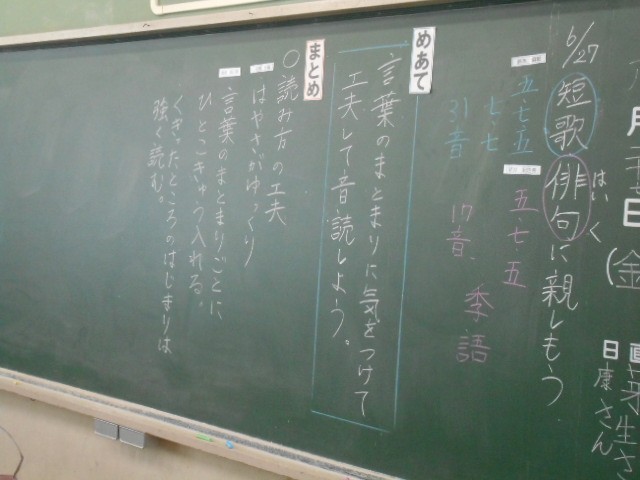 日
(金)
日直
6/27
短歌俳句に親しもう
はいく
五・七・五
七・七
31音
五・七・五
17音
季語
めあて
言葉のまとまりに気をつけて
工夫して音読しよう。
まとめ
○読み方の工夫
はやさがゆっくり
言葉のまとまりごとに
ひとこきゅう入れる。
くぎったところのはじまりは
強く読む。